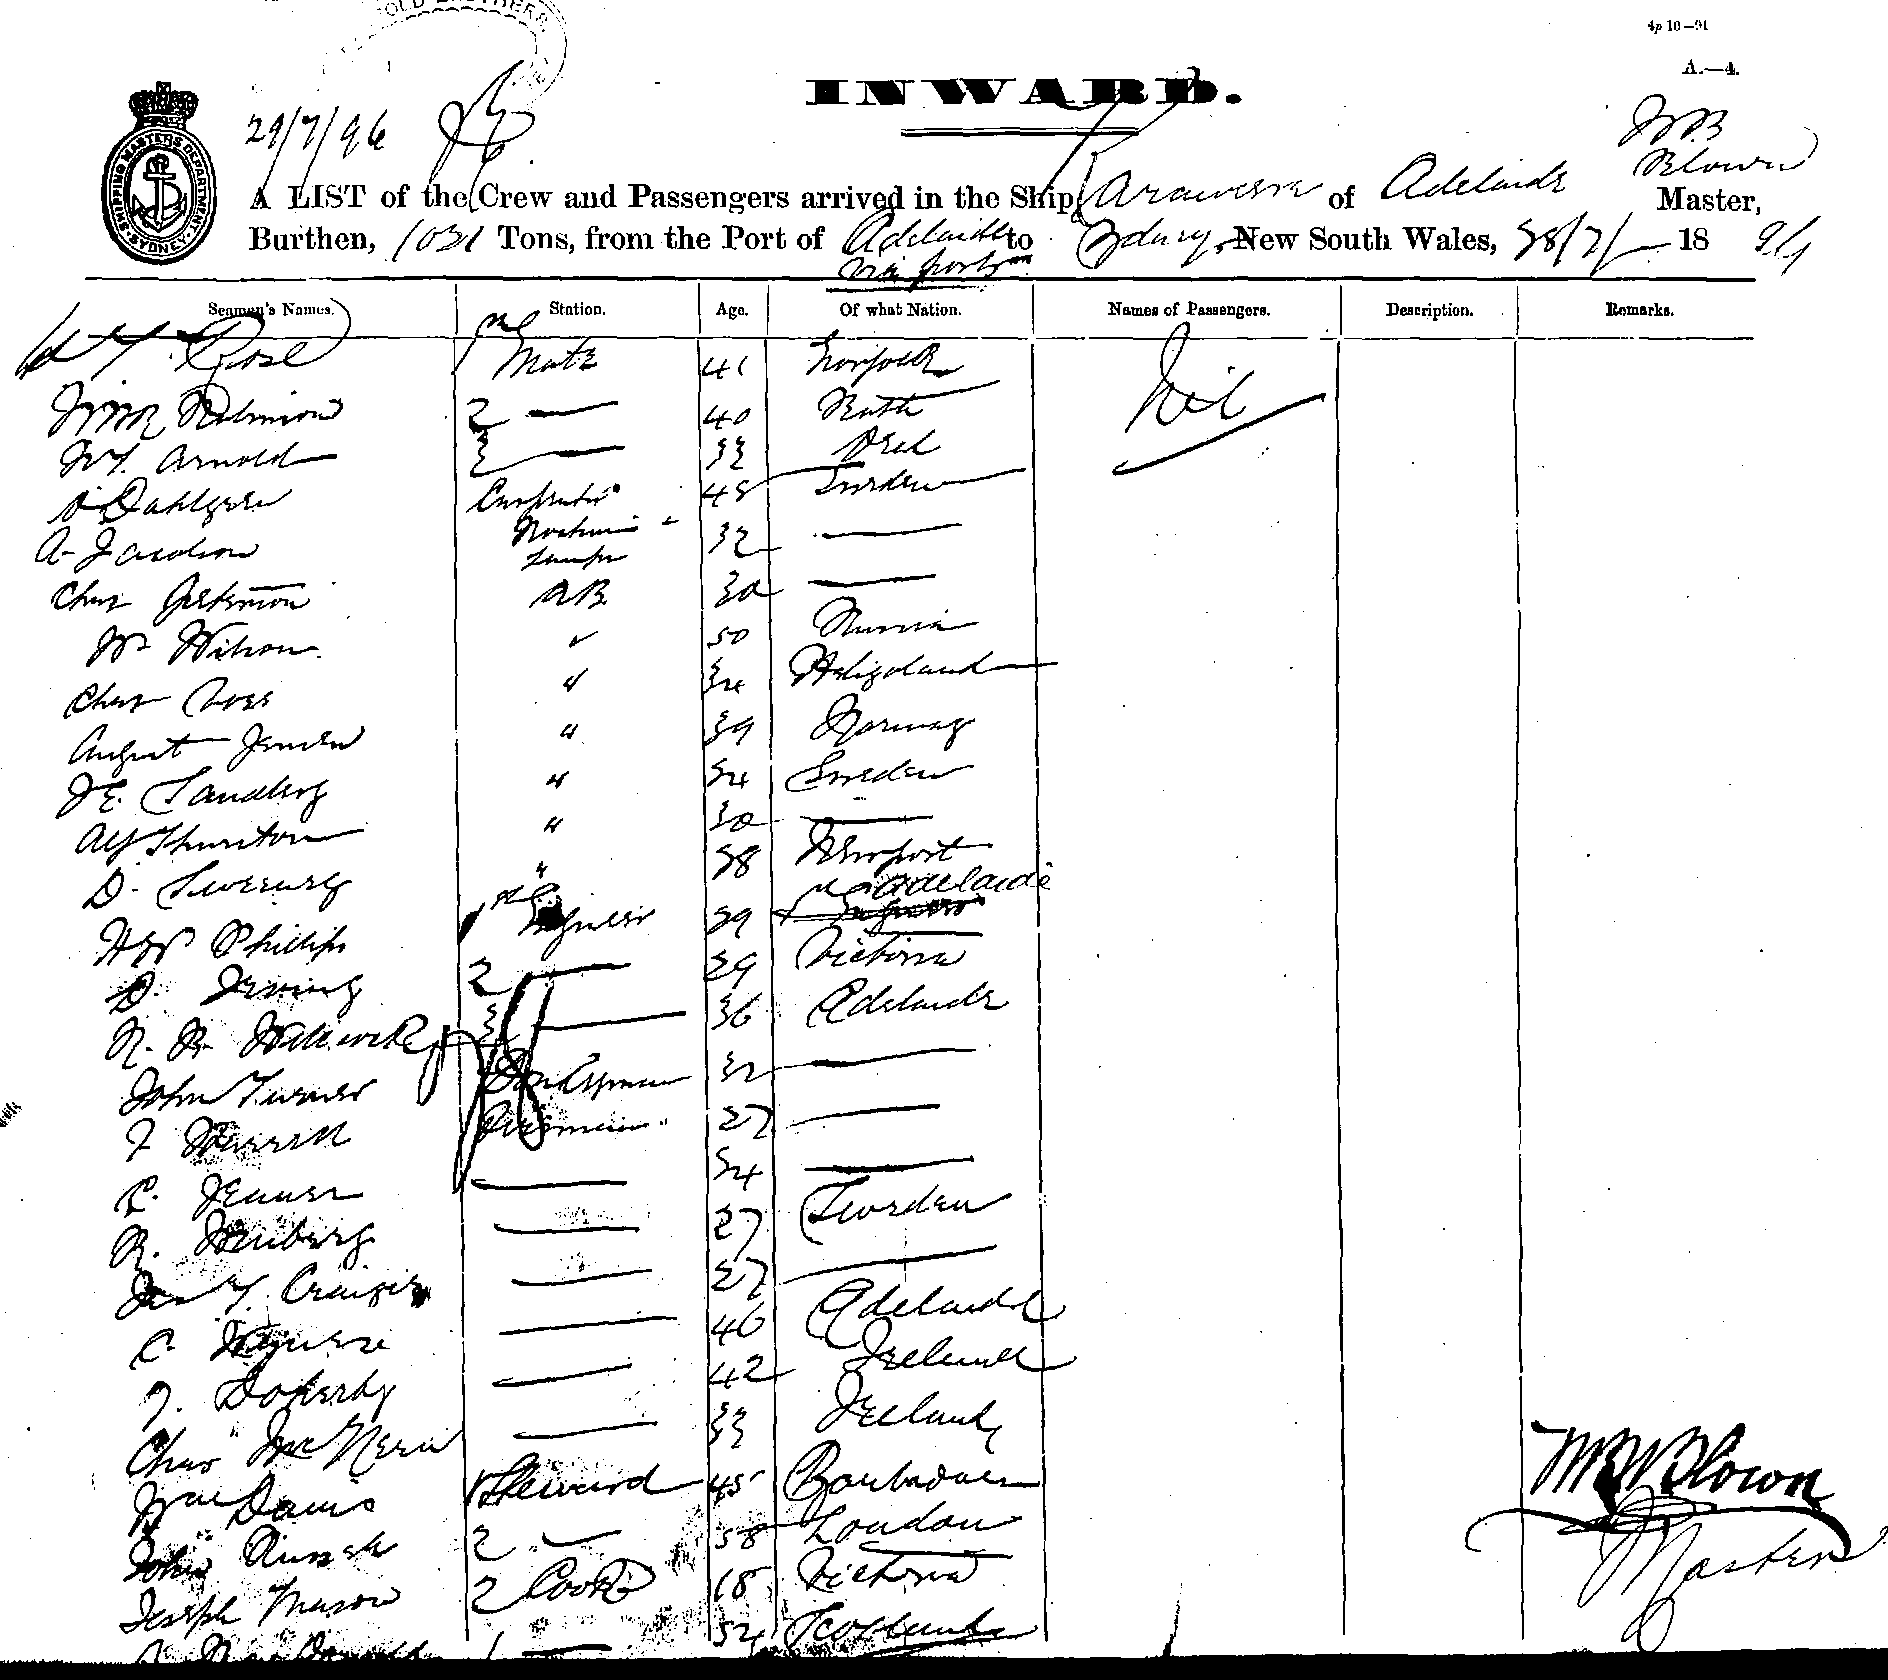 4p 10—91
A.—4.
INWARD.
29/7/96
SHIPPING MASTERS DEPARTMENT SYDNEY
W B
Blown
A LIST of the Crew and Passengers arrived in the Ship Kararweera of Adelaide Master,
Burthen, 1031 Tons, from the Port of Adelaide to Sydney, New South Wales, 28/7/ 18 96
via ports
Seamen's Names. Station. Age. Of what Nation. Names of Passengers. Description. Remarks.
Rose Mate 41 Norfolk Nil
Wm Robinson 2 — 40 Bath
W J. Arnold 3 — 33 Deal
Dahlgren Carpenter 48 Sweden
A. Jacobson Lamps 32 —
Chas AB 30 —
W Wilson " 50 Russia
Chas Voss " 34 Heligoland
August Jensen " 39 Norway
J E. Sandberg " 34 Sweden
Alf Thurston " 30 —
D. " 38 Newport
H W Phillips 39 Adelaide
D. Irving 2 — 29 Victoria
R. B. 3 — 36 Adelaide
John Turner Donkeyman 32 —
F Merrill Fireman 27 —
C. Jenner — 34 —
R. — 27 Sweden
Jas T. — 27 —
C. Maguire — 46 Adelaide
J. Doherty — 42 Ireland
Chas — 33 Ireland
Wm Davis Steward 45 Barbadoes
John 2 — 58 London
Joseph Mason 2 Cook 18 Victoria
52 Scotland
W B Blown
Master